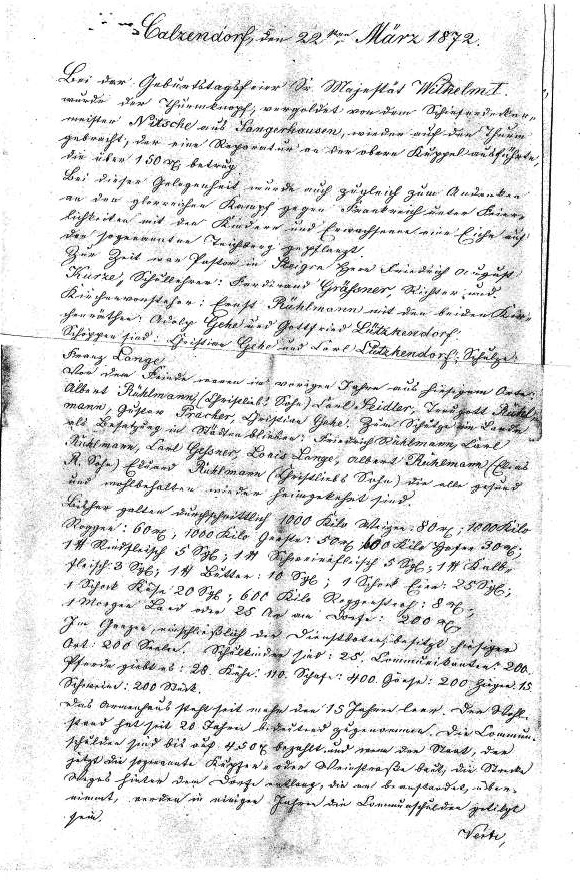 Calzendorf, den 22ten März 1872.
Bei der Geburtstagsfeier Sr. Majestät Wilhelm I.
wurde der Thurmknopf, vergoldet von dem Schieferdecker-
meister Nitsche aus Sangerhausen, wieder auf den Thurm
gebracht, der eine Reparatur an der obern Kuppel ausführte,
die über 150 rℓ betrug.
Bei dieser Gelegenheit wurde auch zugleich zum Andenken
an den glorreichen Kampf gegen Frankreich unter Feier-
lichkeiten mit den Kindern und Erwachsenen eine Eiche auf
den sogenannten Teichberg gepflanzt.
Zur Zeit war Pastor in Steigra Herr Friedrich August
Kurze, Schullehrer: Ferdinand Gräßner, Richter und
Kirchenvorsteher: Ernst Rühlmann mit den beiden Kir-
chenräthen: Adolp Gehe und Gottfried Lützkendorf.
Schöppen sind: Christian Gehe und Carl Lützkendorf; Schulze:
Franz Lange.
Vor dem Feinde waren im vorigen Jahre aus hiesigem Orte:
Albert Rühlmann (Christliebs Sohn) Carl Seidler, Traugott Rühl-
mann, Gustav Pracher, Christian Gehe. Zum Schutze im Lande
als Besatzung in Städten blieben: Friedrich Rühlmann, Carl
Rühlmann, Carl Geßner, Louis Lange, Albert Rühlmann (Elias
R. Sohn) Eduard Rühlmann (Christliebs Sohn) die alle gesund
und wohlbehalten wieder heimgekehrt sind.
Bisher galten durchschnittlich 1000 Kilo Weizen: 80 rℓ; 1000 Kilo
Roggen: 60 rℓ; 1000 Kilo Gerste: 50 rℓ 600 Kilo Hafer 30 rℓ;
1 ℔ Rindfleisch 5 Sgl; 1 ℔ Schweinefleisch 5 Sgl; 1 ℔ Kalb-
fleisch: 3 Sgl; 1 ℔ Butter: 10 Sgl; 1 Schock Eier: 25 Sgl;
1 Schock Käse 20 Sgl; 600 Kilo Roggenstroh: 8 rℓ;
1 Morgen Land oder 25 Ar am Dorfe: 200 rℓ
Im Ganzen, einschließlich der Dienstboten besitzt hiesiger
Ort: 200 Seelen. Schulkinder sind: 25. Communikanten: 200.
Pferde giebt es: 28. Kühe: 110. Schafe: 400. Gänse: 200 Ziegen. 15.
Schweine: 200 Stück.
Das Armenhaus steht seit mehr den 15 Jahren leer. Der Wohl-
stand hat seit 20 Jahren bedeutend zugenommen. Die Commun-
schulden sind bis auf 450 rℓ bezahlt und wenn der Staat, der
jetzt die sogenannte Kupfer- oder Weinstraße baut, die Strecke
Weges hinter dem Dorfe entlang, die er beanstandet, über-
nimmt, werden in einigen Jahren die Communschulden getilgt
sein.